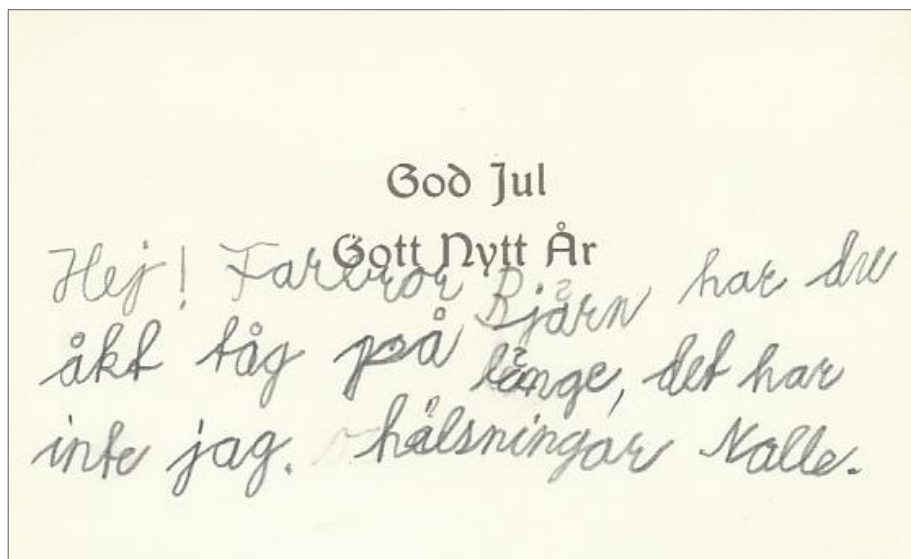 God Jul
Gott Nytt År
Hej! Farbror Bjårn har du
åkt tåg på långe, det har
inte jag. hålsningar Nalle.